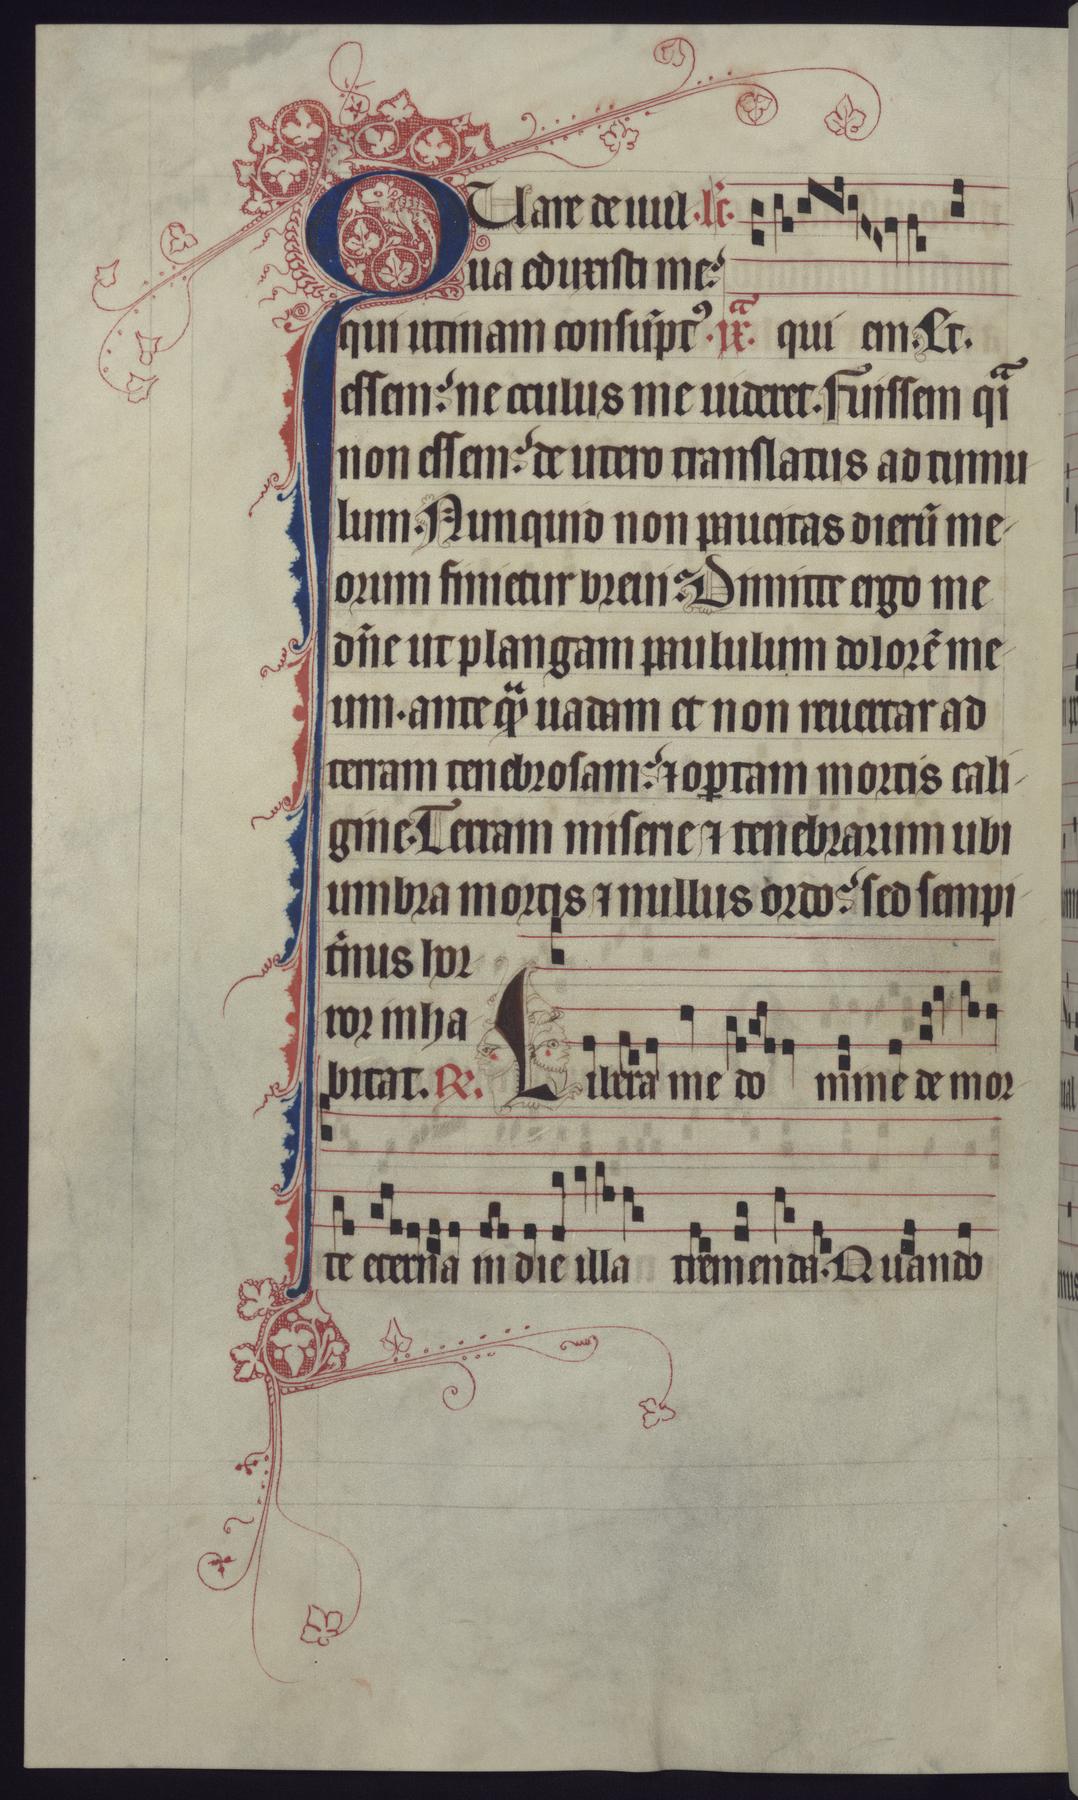 QUare de uul .lc̄.
ua eduxisti me?
qui utinam consūptꝰ .ixᵃ. qui em. Et.
essem? ne oculus me uideret. Fuissem qⁱ
non essem? de utero translatus ad tumu
lum. Nunquid non paucitas dierū me
orum finietur breui? Dimitte ergo me
dn̄e ut plangam paululum dolorē me
um. ante qᷓ uadam et non reuertar ad
terram tenebrosam? ⁊ opertam mortis cali
gine. Terram miserie ⁊ tenebrarum ubi
umbra mortis ⁊ nullus ordo? sed sempi
t̄nus hor
ror inha
bitat. R̷. Libera me do mine de mor
te eterna in die illa tremenda. Quando